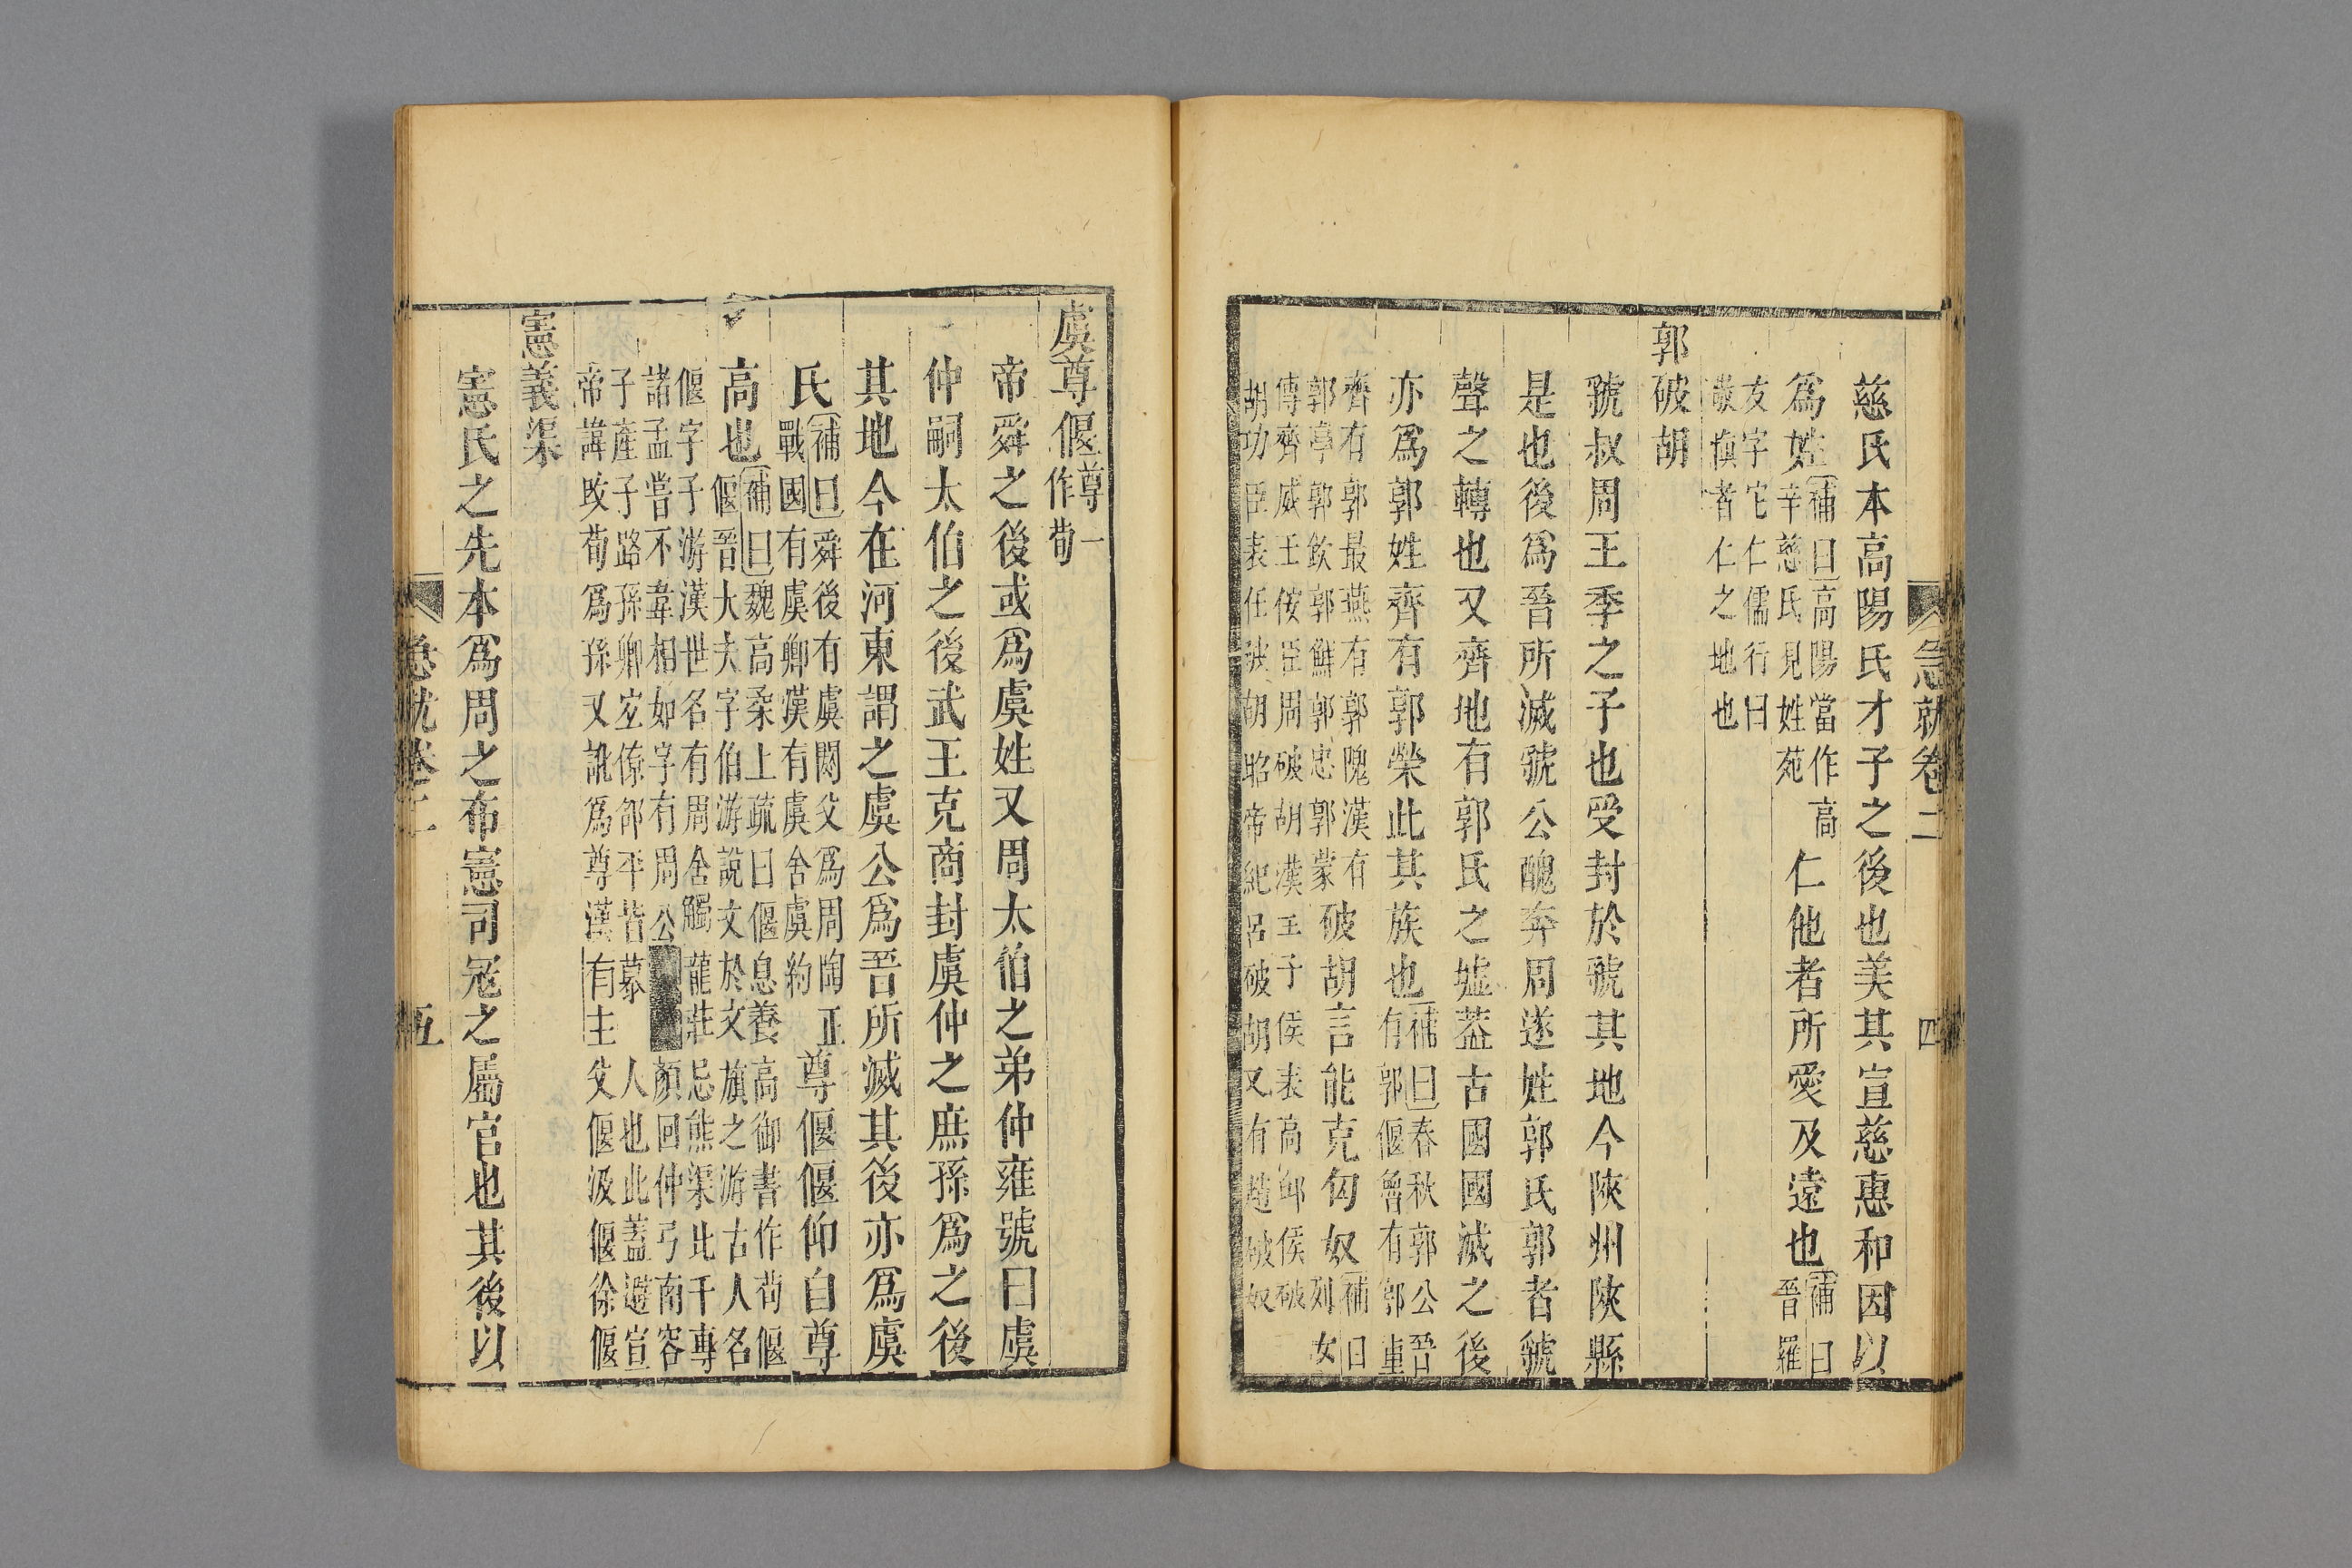 急就卷二
四
慈氏本高陽氏才子之後也美其宣慈惠和因以
爲姓補曰高陽當作高辛慈氏見姓苑仁他者所愛及遠也補曰晉羅
友字它仁儒行曰敬慎者仁之地也
郭破胡
虢叔周王季之子也受封於虢其地今陝州陝縣
是也後爲晉所滅虢公醜奔周遂姓郭氏郭者虢
聲之轉也又齊地有郭氏之墟葢古國國滅之後
亦爲郭姓齊有郭榮此其族也補曰春秋郭公晉有郭偃魯有郭重
齊有郭最燕有郭隗漢有郭亭郭欽郭鮮郭忠郭蒙破胡言能克匈奴補曰列女
傳齊威王佞臣周破胡漢王子侯表高郵侯破
胡功臣表任破胡昭帝紀呂破胡又有趙破奴
虞尊偃尊一作荀
帝舜之後或爲虞姓又周太伯之弟仲雍號曰虞
仲嗣太伯之後武王克商封虞仲之庶孫爲之後
其地今在河東謂之虞公爲晉所滅其後亦爲虞
氏補曰舜後有虞閼父爲周陶正戰國有虞卿漢有虞舍虞約尊偃偃仰自尊
高也補曰魏高柔上疏曰偃息養高御書作荀偃偃晉大夫字伯游說文於文旗之游古人名
偃字子游漢世名有周舍觸龍莊忌熊渠此千專
諸孟嘗不韋相如字有周公顏回仲弓南容
子產子路孫卿宓僚郃平皆慕人也此蓋避宣
帝諱改荀爲孫又訛爲尊漢有主父偃汲偃徐偃
憲義渠
憲氏之先本爲周之布憲司寇之屬官也其後以
急就卷二
五